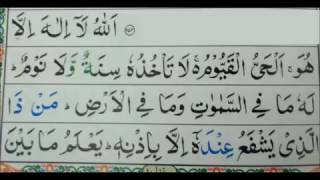 اَللّٰهُ لَاۤ اِلٰهَ اِلَّا
هُوَ ۚ اَلْحَیُّ الْقَیُّوْمُ ۚ۬ لَا تَاْخُذُهٗ سِنَةٌ وَّلَا نَوْمٌ ؕ
لَهٗ مَا فِی السَّمٰوٰتِ وَمَا فِی الْاَرْضِ ؕ مَنْ ذَا
الَّذِیْ یَشْفَعُ عِنْدَهٗۤ اِلَّا بِاِذْنِهٖ ؕ یَعْلَمُ مَا بَیْنَ